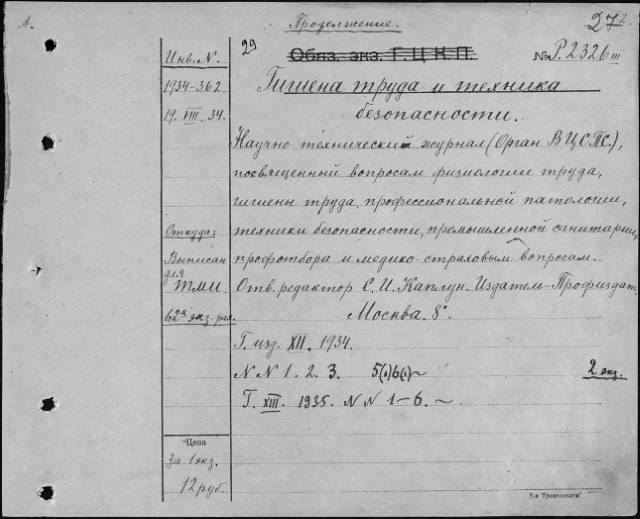 Продолжение.
272.
Инв. N.
29
Обяз. экз. Г.Ц.К.П.
№ Р.2326 III
1934-362
Гигиена труда и техника
19. VIII. 34.
безопасности.
Научно технический журнал (Орган ВЦСПС.),
посвященный вопросам физиологии труда,
гигиены труда, профессиональной патологии,
Откуда:
техники безопасности, промышленной санитарии,
Выписан
профотбора и медико-страховым вопросам.
для
ТМИ.
Отв. редактор С. И. Каплун. Издатель Профиздат
в 2х экз-рах.
Москва. 8°.
Г. изд. XII. 1934.
N N 1. 2. 3. 5(1)6(1)~
2 экз.
Г. XIII. 1935. N N 1-6. ~
Цена
За 1 экз.
12 руб.